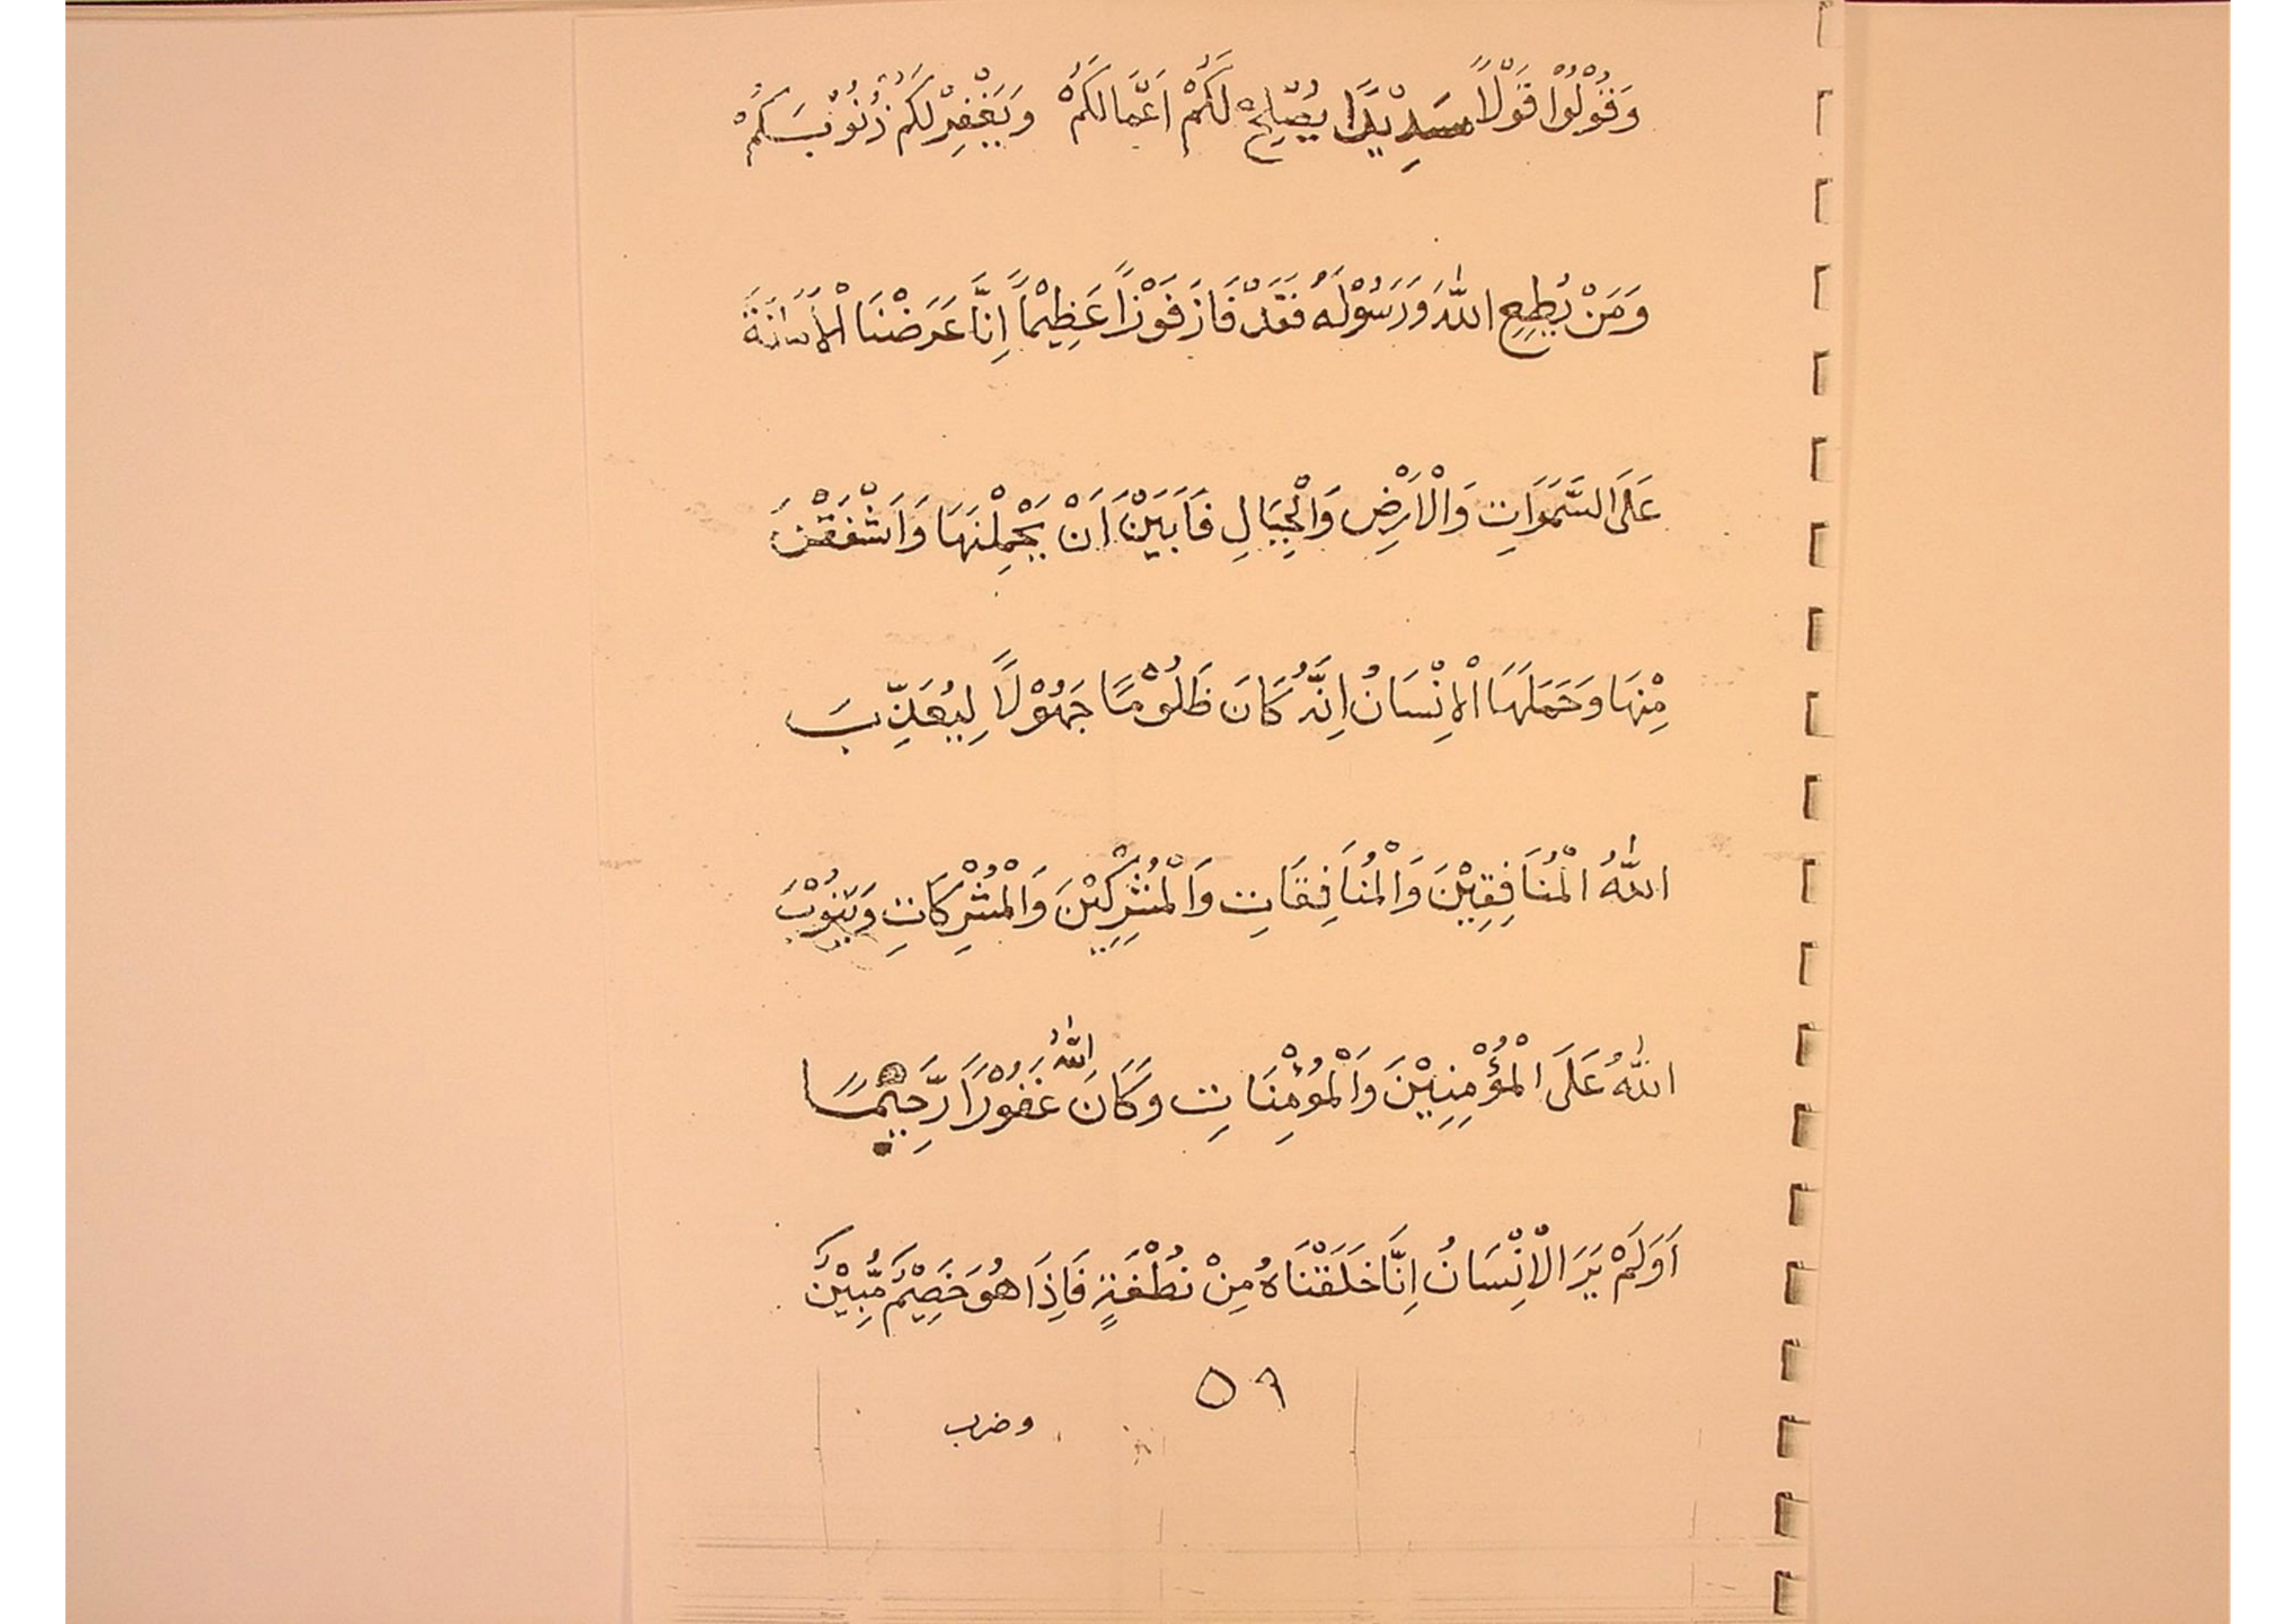 وَقُوْلُوْا قَوْلًا سَدِيْدًا يُصْلِحْ لَكُمْ اَعْمَالَكُمْ وَيَغْفِرْلَكُمْ ذُنُوْبَكُمْ
وَمَنْ يُطِعِ اللّٰهَ وَرَسُوْلَهُ فَقَدْ فَازَ فَوْزًا عَظِيْمًا اِنَّا عَرَضْنَا الْاَمَانَةَ
عَلَى السَّمَوَاتِ وَالْاَرْضِ وَالْجِبَالِ فَاَبَيْنَ اَنْ يَحْمِلْنَهَا وَاَشْفَقْنَ
مِنْهَا وَحَمَلَهَا الْاِنْسَانُ اِنَّهُ كَانَ ظَلُوْمًا جَهُوْلًا لِيُعَذِّبَ
اللّٰهُ الْمُنَافِقِيْنَ وَالْمُنَافِقَاتِ وَالْمُشْرِكِيْنَ وَالْمُشْرِكَاتِ وَيَتُوْبَ
اللّٰهُ عَلَى الْمُؤْمِنِيْنَ وَالْمُؤْمِنَاتِ وَكَانَ اللّٰهُ غَفُوْرًا رَّحِيْمًا
اَوَلَمْ يَرَ الْاِنْسَانُ اِنَّا خَلَقْنَاهُ مِنْ نُطْفَةٍ فَاِذَا هُوَ خَصِيْمٌ مُّبِيْنٌ
٥٩
وضرب